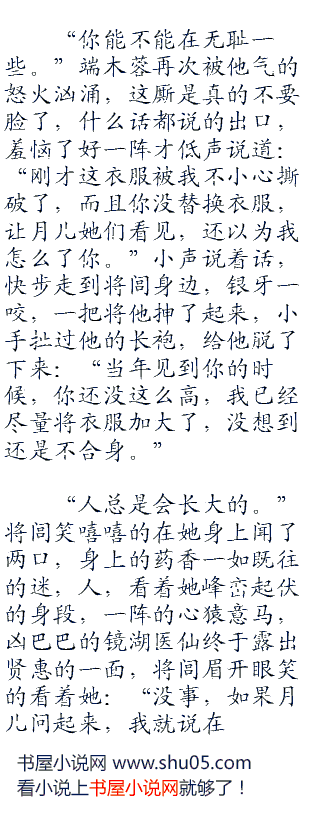 “你能不能在无耻一
些。”端木蓉再次被他气的
怒火汹涌，这厮是真的不要
脸了，什么话都说的出口，
羞恼了好一阵才低声说道：
“刚才这衣服被我不小心撕
破了，而且你没替换衣服，
让月儿她们看见，还以为我
怎么了你。”小声说着话，
快步走到将闾身边，银牙一
咬，一把将他抻了起来，小
手扯过他的长袍，给他脱了
下来：“当年见到你的时
候，你还没这么高，我已经
尽量将衣服加大了，没想到
还是不合身。”
“人总是会长大的。”
将闾笑嘻嘻的在她身上闻了
两口，身上的药香一如既往
的迷，人，看着她峰峦起伏
的身段，一阵的心猿意马，
凶巴巴的镜湖医仙终于露出
贤惠的一面，将闾眉开眼笑
的看着她：“没事，如果月
儿问起来，我就说在
书屋小说网 www.shu05.com
看小说上书屋小说网就够了！